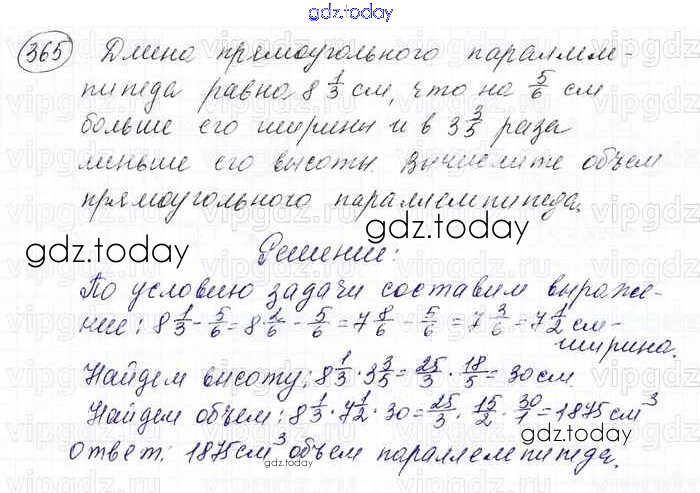 gdz.today
365 Длина прямоугольного параллеле-
пипеда равна 8 1/3 см, что на 5/6 см
больше его ширины и в 3 3/5 раза
меньше его высоты. Вычислите объем
прямоугольного параллелепипеда.
gdz.today
gdz.today
Решение:
По условию задачи составим выраже-
ние: 8 1/3 - 5/6 = 8 1/6 - 5/6 = 7 8/6 - 5/6 = 7 3/6 = 7 1/2 см-
ширина.
Найдем высоту: 8 1/3 · 3 3/5 = 25/3 · 18/5 = 30 см
Найдем объем: 8 1/3 · 7 1/2 · 30 = 25/3 · 15/2 · 30/1 = 1875 см³
gdz.today
Ответ: 1875 см³ объем параллелепипеда.
gdz.today